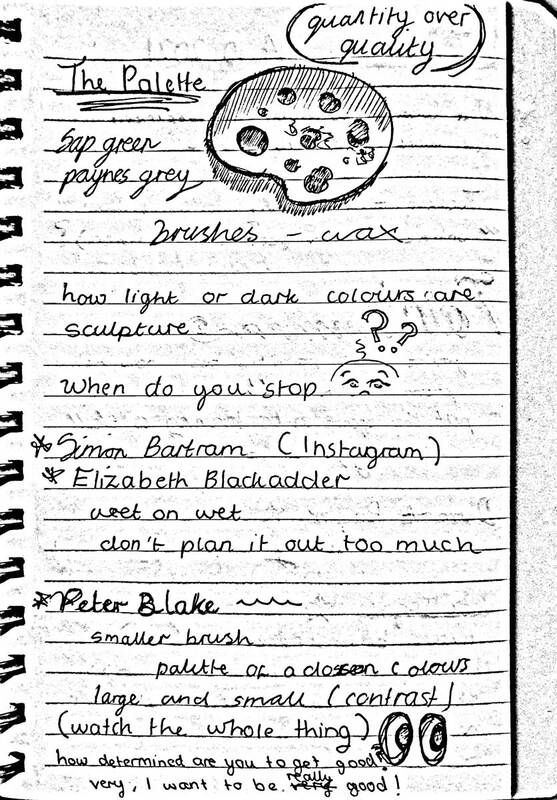 quantity over
quality
The Palette
Sap green
paynes grey
brushes - wax
how light or dark colours are
sculpture
??
When do you stop
* Simon Bartram (Instagram)
* Elizabeth Blackadder
wet on wet
don't plan it out too much
* Peter Blake
smaller brush
palette of a dozen colours
large and small (contrast)
(watch the whole thing)
how determined are you to get good?
very, I want to be really very good!